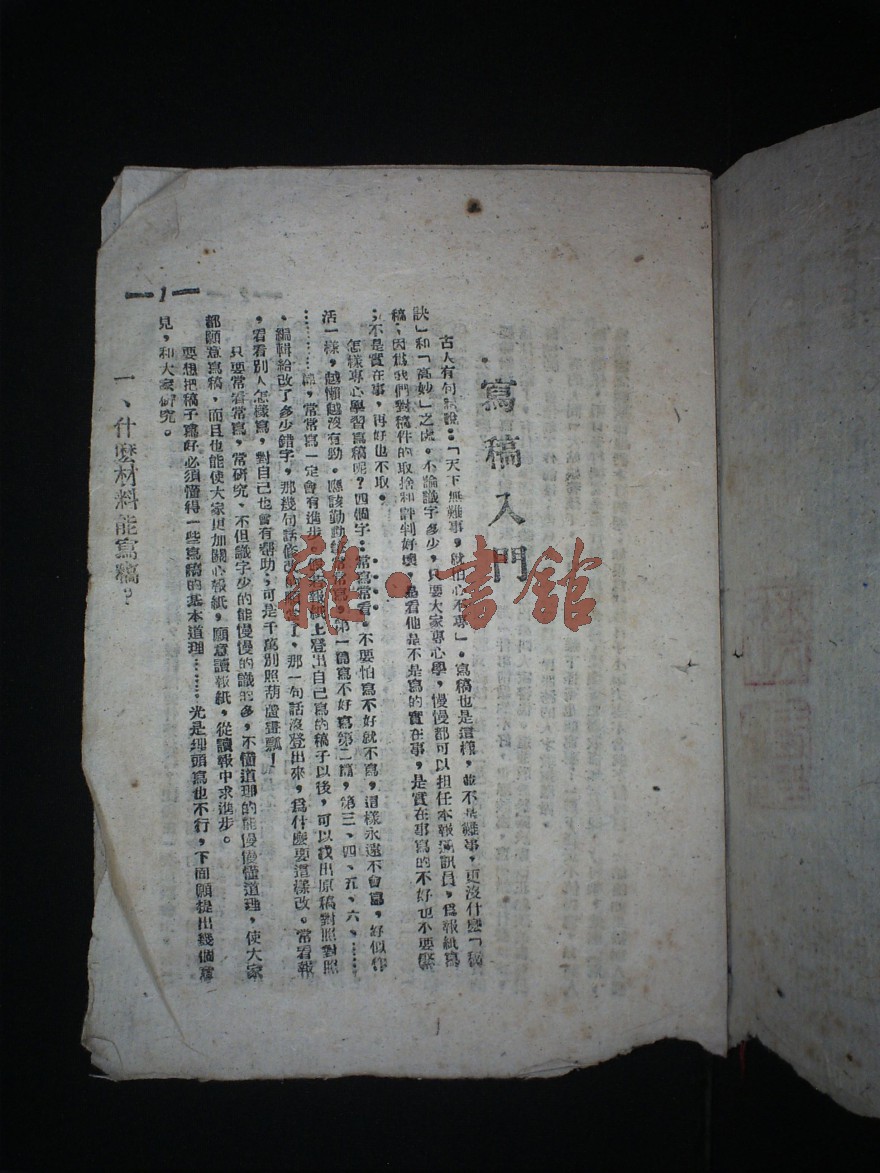 寫稿入門
古人有句話說：「天下無難事，就怕心不專」。寫稿也是這樣，並不是難事，更沒什麼「秘
訣」和「高妙」之處。不論識字多少，只要大家專心學，慢慢都可以担任本報通訊員，爲報紙寫
稿；因爲我們對稿件的取捨和評判好壞，是看他是不是寫的實在事，是實在事寫的不好也不要緊
；不是實在事，再好也不取。
怎樣專心學習寫稿呢？四個字：常寫常看。不要怕寫不好就不寫，這樣永遠不會寫，好似作
活一樣，越懶越沒有勁。應該勤勤常常寫，第一篇寫不好寫第二篇，第三、四、五、六、……
……篇，常常寫一定會有進步。假若報紙上登出自己寫的稿子以後，可以找出原稿對照對照
，編輯給改了多少錯字，那幾句話修改了，那一句話沒登出來，爲什麼要這樣改。常看報
，看看別人怎樣寫，對自己也會有幫助；可是千萬別照葫蘆畫瓢！
只要常看常寫，常研究，不但識字少的能慢慢的識的多，不懂道理的能慢慢懂道理，使大家
都願意寫稿，而且也能使大家更加關心報紙，願意讀報紙，從讀報中求進步。
要想把稿子寫好必須懂得一些寫稿的基本道理……，光是埋頭寫也不行，下面願提出幾個意
見，和大家研究。
一、什麼材料能寫稿？
1
雜·書館